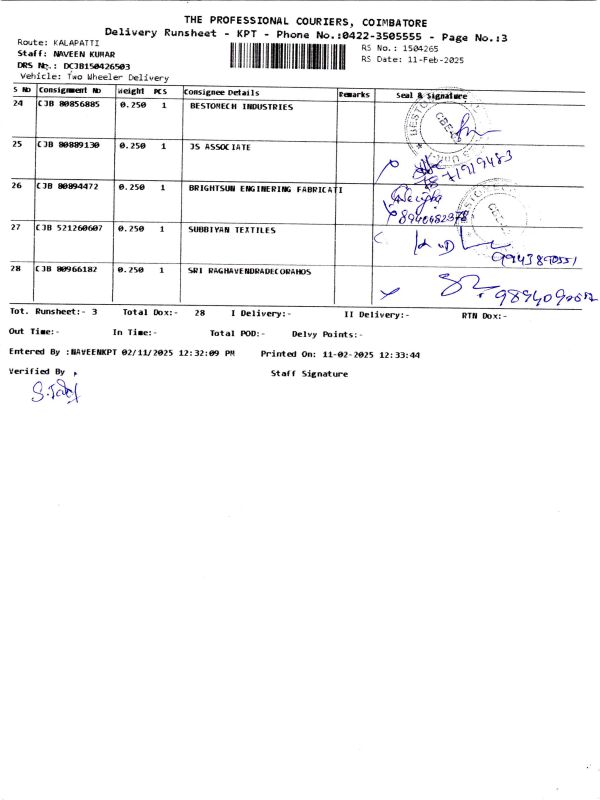 THE PROFESSIONAL COURIERS, COIMBATORE
Delivery Runsheet - KPT - Phone No.:0422-3505555 - Page No.:3
Route: KALAPATTI
RS No.: 1504265
Staff: NAVEEN KUMAR
RS Date: 11-Feb-2025
DRS No.: DCJB150426503
Vehicle: Two Wheeler Delivery
S No Consignment No Weight PCS Consignee Details Remarks Seal & Signature
24 CJB 80856885 0.250 1 BESTOMECH INDUSTRIES
25 CJB 80889130 0.250 1 JS ASSOCIATE
26 CJB 80894472 0.250 1 BRIGHTSUN ENGINERING FABRICATI
27 CJB 521260607 0.250 1 SUBBIYAN TEXTILES
9943890551
28 CJB 80966182 0.250 1 SRI RAGHAVENDRADECORAHOS
Tot. Runsheet:- 3 Total Dox:- 28 I Delivery:- II Delivery:- RTN Dox:-
Out Time:- In Time:- Total POD:- Delvy Points:-
Entered By :NAVEENKPT 02/11/2025 12:32:09 PM Printed On: 11-02-2025 12:33:44
Verified By Staff Signature